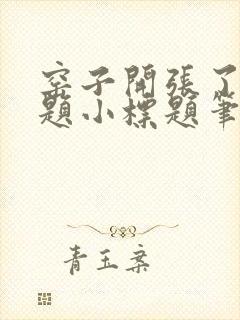 窑子開張了
題小標題筆
青玉案